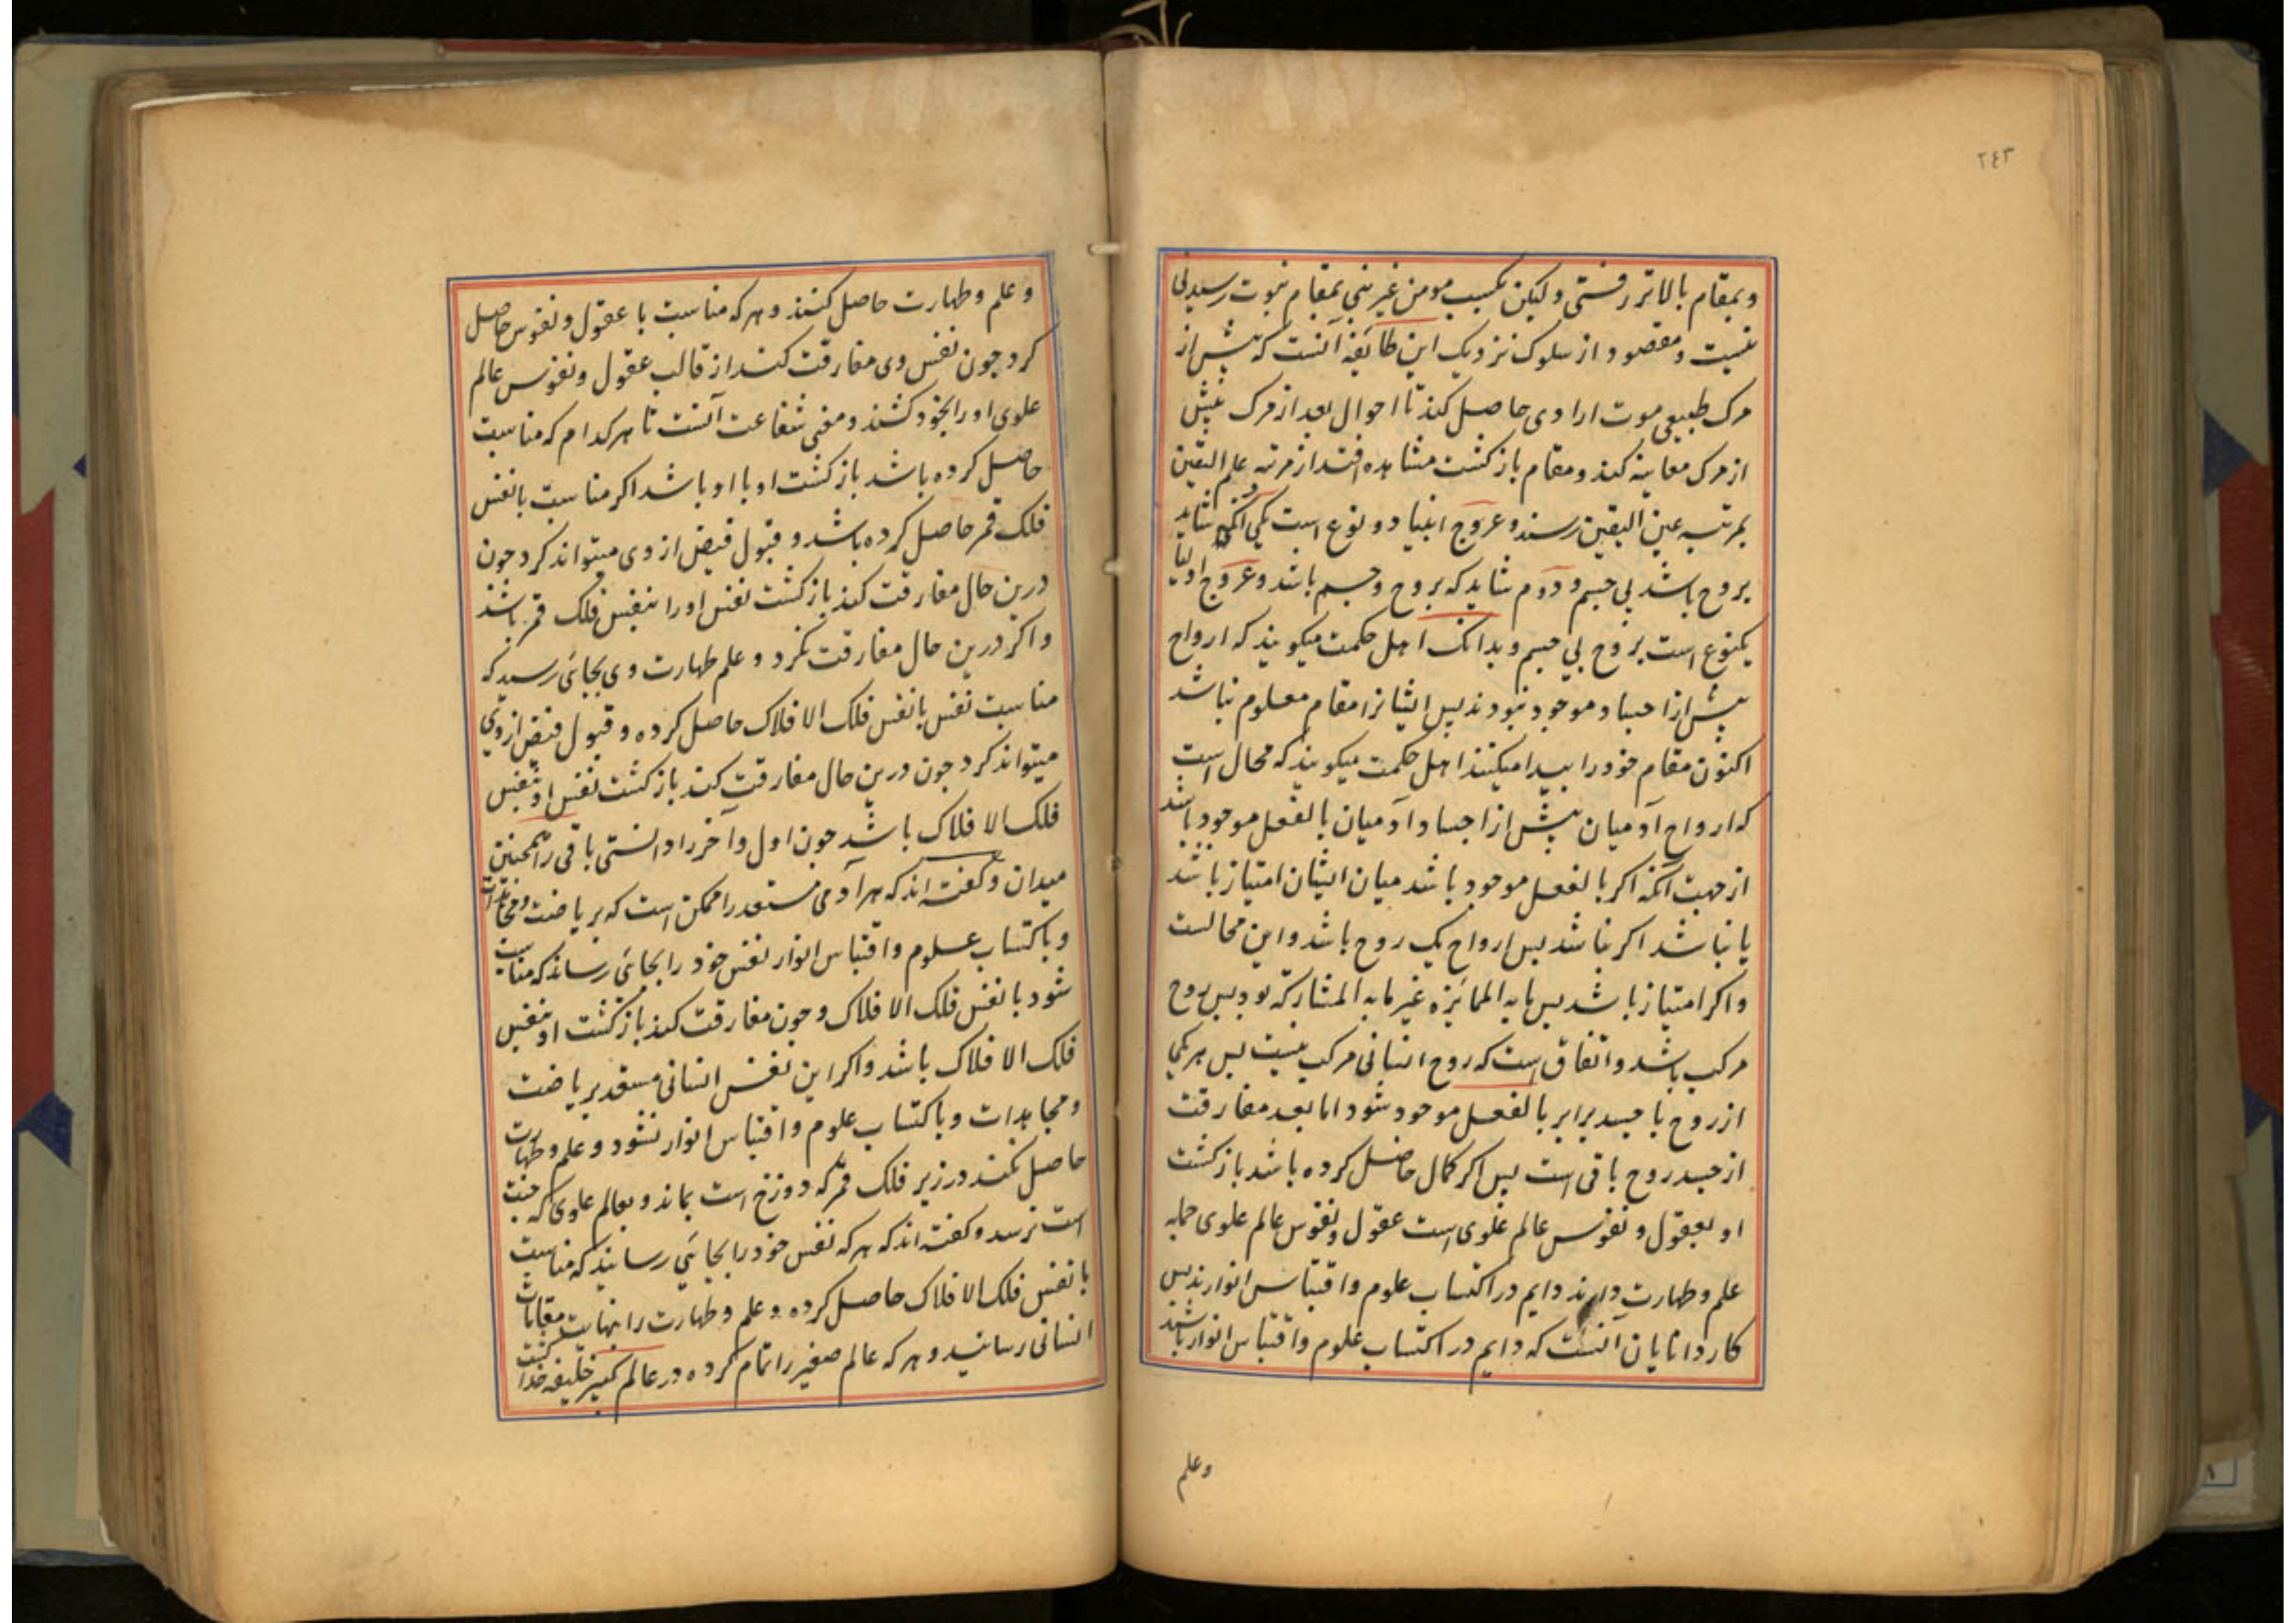 ۲۴۳
وبمقام بالاتر رفتی ولیکن بکسب مومن غیر نبی بمقام نبوت رسیدنی
نیست ومقصود از سلوک نزدیک این طایفه آنست که پیش از
مرک طبیعی موت ارادی حاصل کند تا احوال بعد از مرک پیش
از مرک معاینه کند ومقام بازکشت مشاهده افتد از مرتبه علم الیقین
بمرتبه عین الیقین رسند وعروج انبیا دو نوع است یکی آنکه شاید
بروح باشد بی جسم و دوم شاید که بروح وجسم باشد وعروج اولیا
یکنوع است بروح بی جسم وبدانک اهل حکمت میکویند که ارواح
پیش از اجساد موجود نبودند پس ایشانرا مقام معلوم نباشد
اکنون مقام خود را پیدا میکنند اهل حکمت میکویند که محال است
که ارواح آدمیان پیش از اجساد آدمیان بالفعل موجود باشند
از جهت آنکه اکر بالفعل موجود باشد میان ایشان امتیاز باشد
یا نباشد اکر نباشد پس ارواح یک روح باشد واین محالست
واکر امتیاز باشد پس مابه الممایزه غیر مابه المشارکه بود پس روح
مرکب باشد واتفاق است که روح انسانی مرکب نیست پس هریکی
از روح با جسد برابر بالفعل موجود شود اما بعد مفارقت
از جسد روح باقی است پس اکر کمال حاصل کرده باشد بازکشت
او بعقول ونفوس عالم علوی است عقول ونفوس عالم علوی جمله
علم وطهارت دارند دایم در اکتساب علوم واقتباس انوارند پس
کار دانایان آنست که دایم در اکتساب علوم واقتباس انوار باشند
وعلم
وعلم وطهارت حاصل کنند وهرکه مناسبت با عقول ونفوس حاصل
کرد چون نفس وی مفارقت کند از قالب عقول ونفوس عالم
علوی او را بخود کشند ومعنی شفاعت آنست تا هرکدام که مناسبت
حاصل کرده باشد بازکشت او با او باشد اکر مناسبت بانفس
فلک قمر حاصل کرده باشد و قبول فیض از وی میتواند کرد چون
درین حال مفارقت کند بازکشت نفس او را بنفس فلک قمر باشد
واکر درین حال مفارقت نکرد و علم طهارت وی بجائی رسید که
مناسبت نفس بانفس فلک الافلاک حاصل کرده و قبول فیض از وی
میتواند کرد چون درین حال مفارقت کند بازکشت نفس او بنفس
فلک الافلاک باشد چون اول وآخر را دانستی باقی را همچنین
میدان وکفته اند که هر آدمی مستعد را ممکن است که بریاضت و مجاهدات
وباکتساب علوم واقتباس انوار نفس خود را بجائی رساند که مناسبت
شود بانفس فلک الافلاک وچون مفارقت کند بازکشت او بنفس
فلک الافلاک باشد واکر این نفس انسانی مستعد بریاضت
ومجاهدات وباکتساب علوم واقتباس انوار نشود وعلم وطهارت
حاصل نکند در زیر فلک قمر که دوزخ است بماند وبعالم علوی که جنت
است نرسد وکفته اند که هرکه نفس خود را بجائی رسانید که مناسبت
بانفس فلک الافلاک حاصل کرده و علم وطهارت را بنهایت مقامات
انسانی رسانید وهرکه عالم صغیر را تمام کرده در عالم کبیر خلیفه خدا کشت